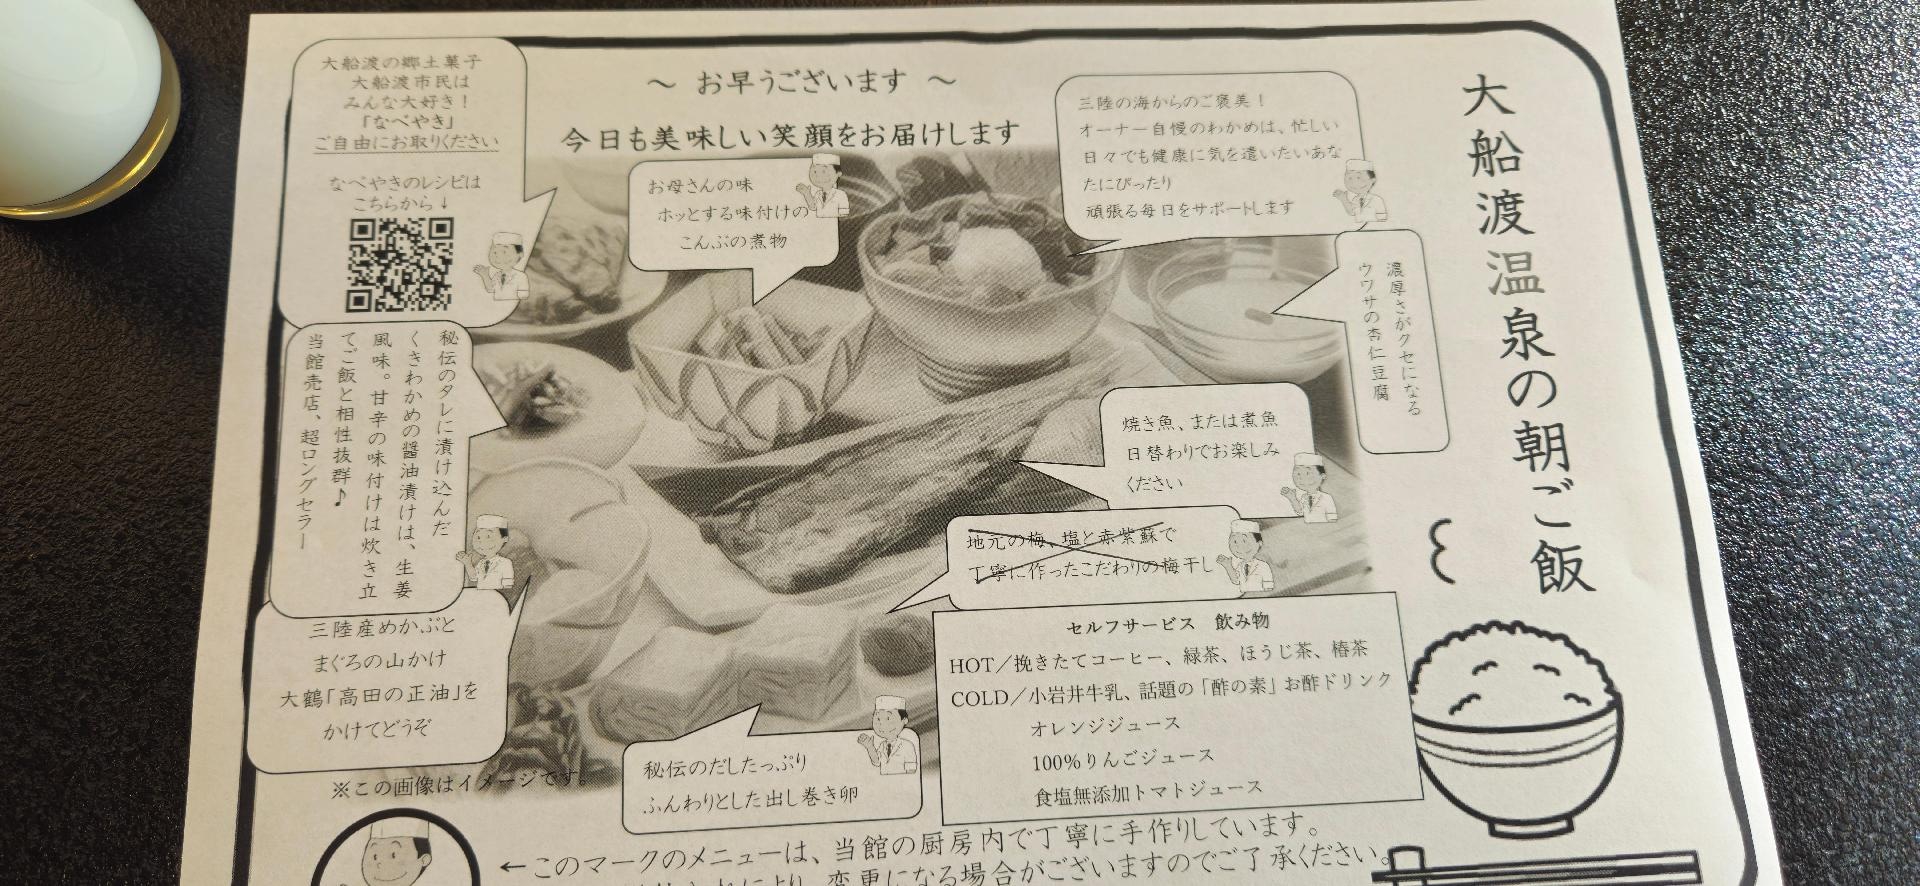 大船渡温泉の朝ご飯
～ お早うございます ～
今日も美味しい笑顔をお届けします
大船渡の郷土菓子
大船渡市民は
みんな大好き！
「なべやき」
ご自由にお取りください
なべやきのレシピは
こちらから↓
お母さんの味
ホッとする味付けの
こんぶの煮物
三陸の海からのご褒美！
オーナー自慢のわかめは、忙しい
日々でも健康に気を遣いたいあな
たにぴったり
頑張る毎日をサポートします
濃厚さがクセになる
ウワサの杏仁豆腐
秘伝のタレに漬け込んだ
くきわかめの醤油漬けは、生姜
風味。甘辛の味付けは炊き立
てご飯と相性抜群♪
当館売店、超ロングセラー
焼き魚、または煮魚
日替わりでお楽しみ
ください
地元の梅、塩と赤紫蘇で
丁寧に作ったこだわりの梅干し
三陸産めかぶと
まぐろの山かけ
大鶴「高田の正油」を
かけてどうぞ
セルフサービス 飲み物
HOT／挽きたてコーヒー、緑茶、ほうじ茶、椿茶
COLD／小岩井牛乳、話題の「酢の素」お酢ドリンク
オレンジジュース
100%りんごジュース
食塩無添加トマトジュース
秘伝のだしたっぷり
ふんわりとした出し巻き卵
※この画像はイメージです。
←このマークのメニューは、当館の厨房内で丁寧に手作りしています。
変更になる場合がございますのでご了承ください。